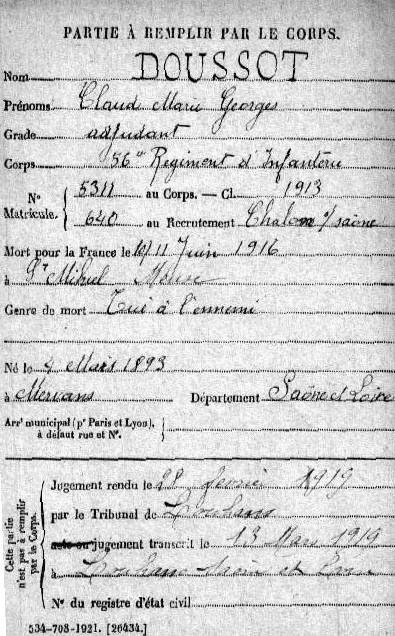 PARTIE À REMPLIR PAR LE CORPS.
Nom DOUSSOT
Prénoms Claud Marie Georges
Grade adjudant
Corps 56e Regiment d'Infanterie
N° Matricule. { 5311 au Corps. — Cl. 1913
640 au Recrutement Chalon s/saône
Mort pour la France le 10/11 Juin 1916
à St Mihiel Meuse
Genre de mort Tué à l'ennemi
Né le 4 Mars 1893
à Mervans Département Saône et Loire
Arrt municipal (pr Paris et Lyon), à défaut rue et N°. {
Cette partie n'est pas à remplir par le Corps.
Jugement rendu le 28 fevrier 1919
par le Tribunal de Louhans
acte ou jugement transcrit le 13 Mars 1919
à Louhans Saône et Loire
N° du registre d'état civil
534-708-1921. [26434.]